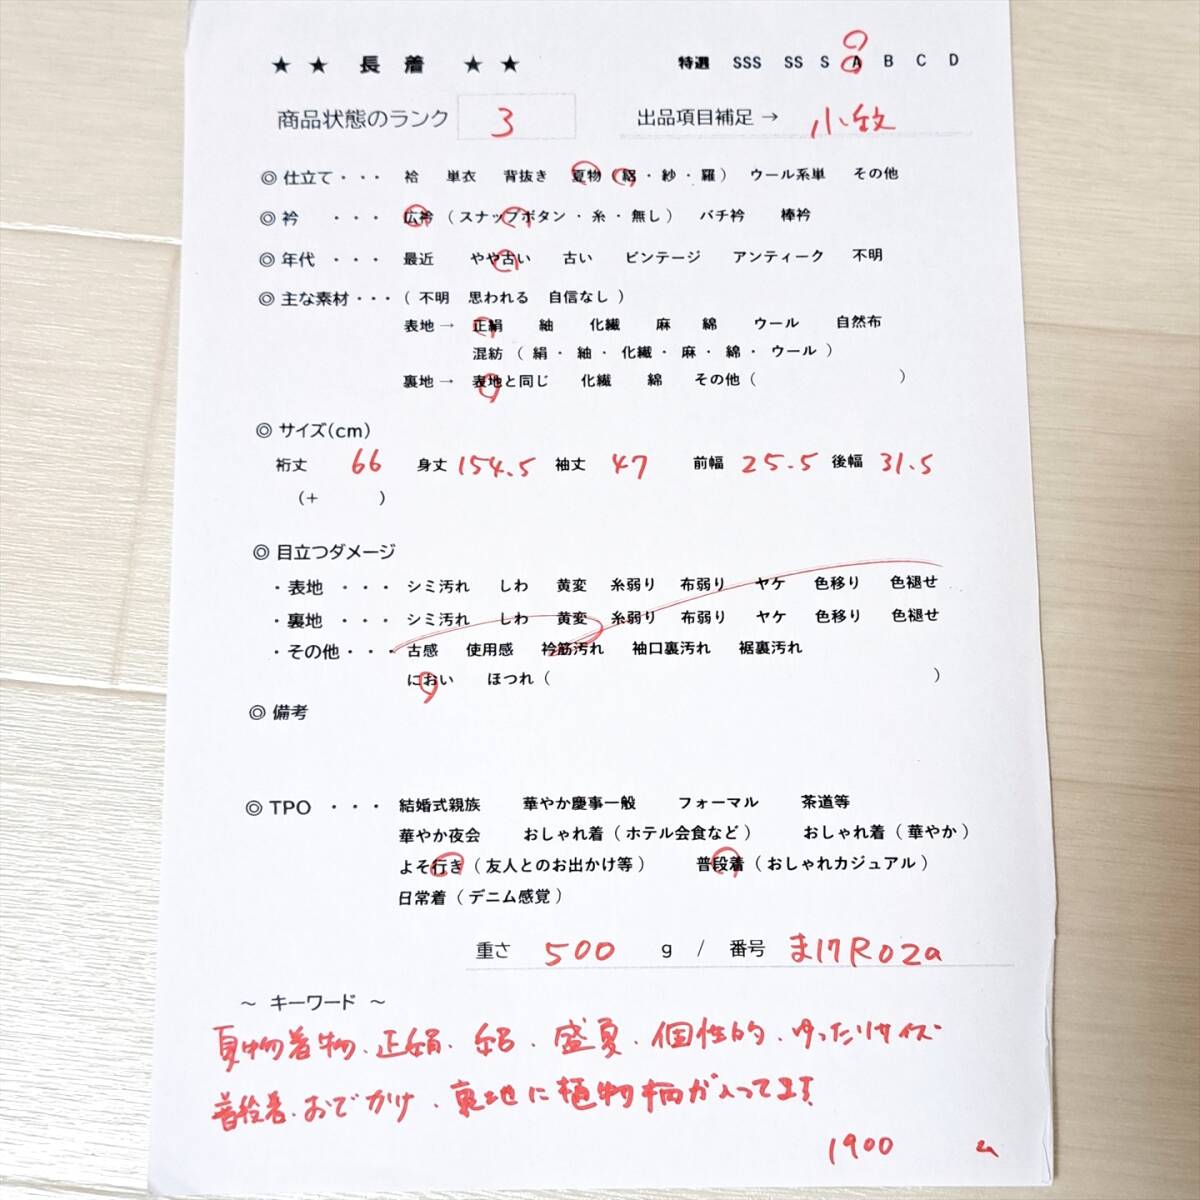 ★ ★ 長 着 ★ ★ 特選 SSS SS S A B C D
商品状態のランク 3 出品項目補足 → 小紋
◎ 仕立て ・・・ 袷 単衣 背抜き 夏物 ( 絽 ・ 紗 ・ 羅 ) ウール系単 その他
◎ 衿 ・・・ 広衿 ( スナップボタン ・ 糸 ・ 無し ) バチ衿 棒衿
◎ 年代 ・・・ 最近 やや古い 古い ビンテージ アンティーク 不明
◎ 主な素材 ・・・ ( 不明 思われる 自信なし )
表地 → 正絹 紬 化繊 麻 綿 ウール 自然布
混紡 ( 絹 ・ 紬 ・ 化繊 ・ 麻 ・ 綿 ・ ウール )
裏地 → 表地と同じ 化繊 綿 その他 ( )
◎ サイズ(cm)
裄丈 66 身丈 154.5 袖丈 47 前幅 25.5 後幅 31.5
(+ )
◎ 目立つダメージ
・表地 ・・・ シミ汚れ しわ 黄変 糸弱り 布弱り ヤケ 色移り 色褪せ
・裏地 ・・・ シミ汚れ しわ 黄変 糸弱り 布弱り ヤケ 色移り 色褪せ
・その他 ・・・ 古感 使用感 衿筋汚れ 袖口裏汚れ 裾裏汚れ
におい ほつれ ( )
◎ 備考
◎ TPO ・・・ 結婚式親族 華やか慶事一般 フォーマル 茶道等
華やか夜会 おしゃれ着 ( ホテル会食など ) おしゃれ着 ( 華やか )
よそ行き ( 友人とのお出かけ等 ) 普段着 ( おしゃれカジュアル )
日常着 ( デニム感覚 )
重さ 500 g / 番号 ま17R02a
～ キーワード ～
夏物着物、正絹、絽、盛夏、個性的、ゆったりサイズ
普段着、おでかけ、裏地に植物柄が入ってます
1900